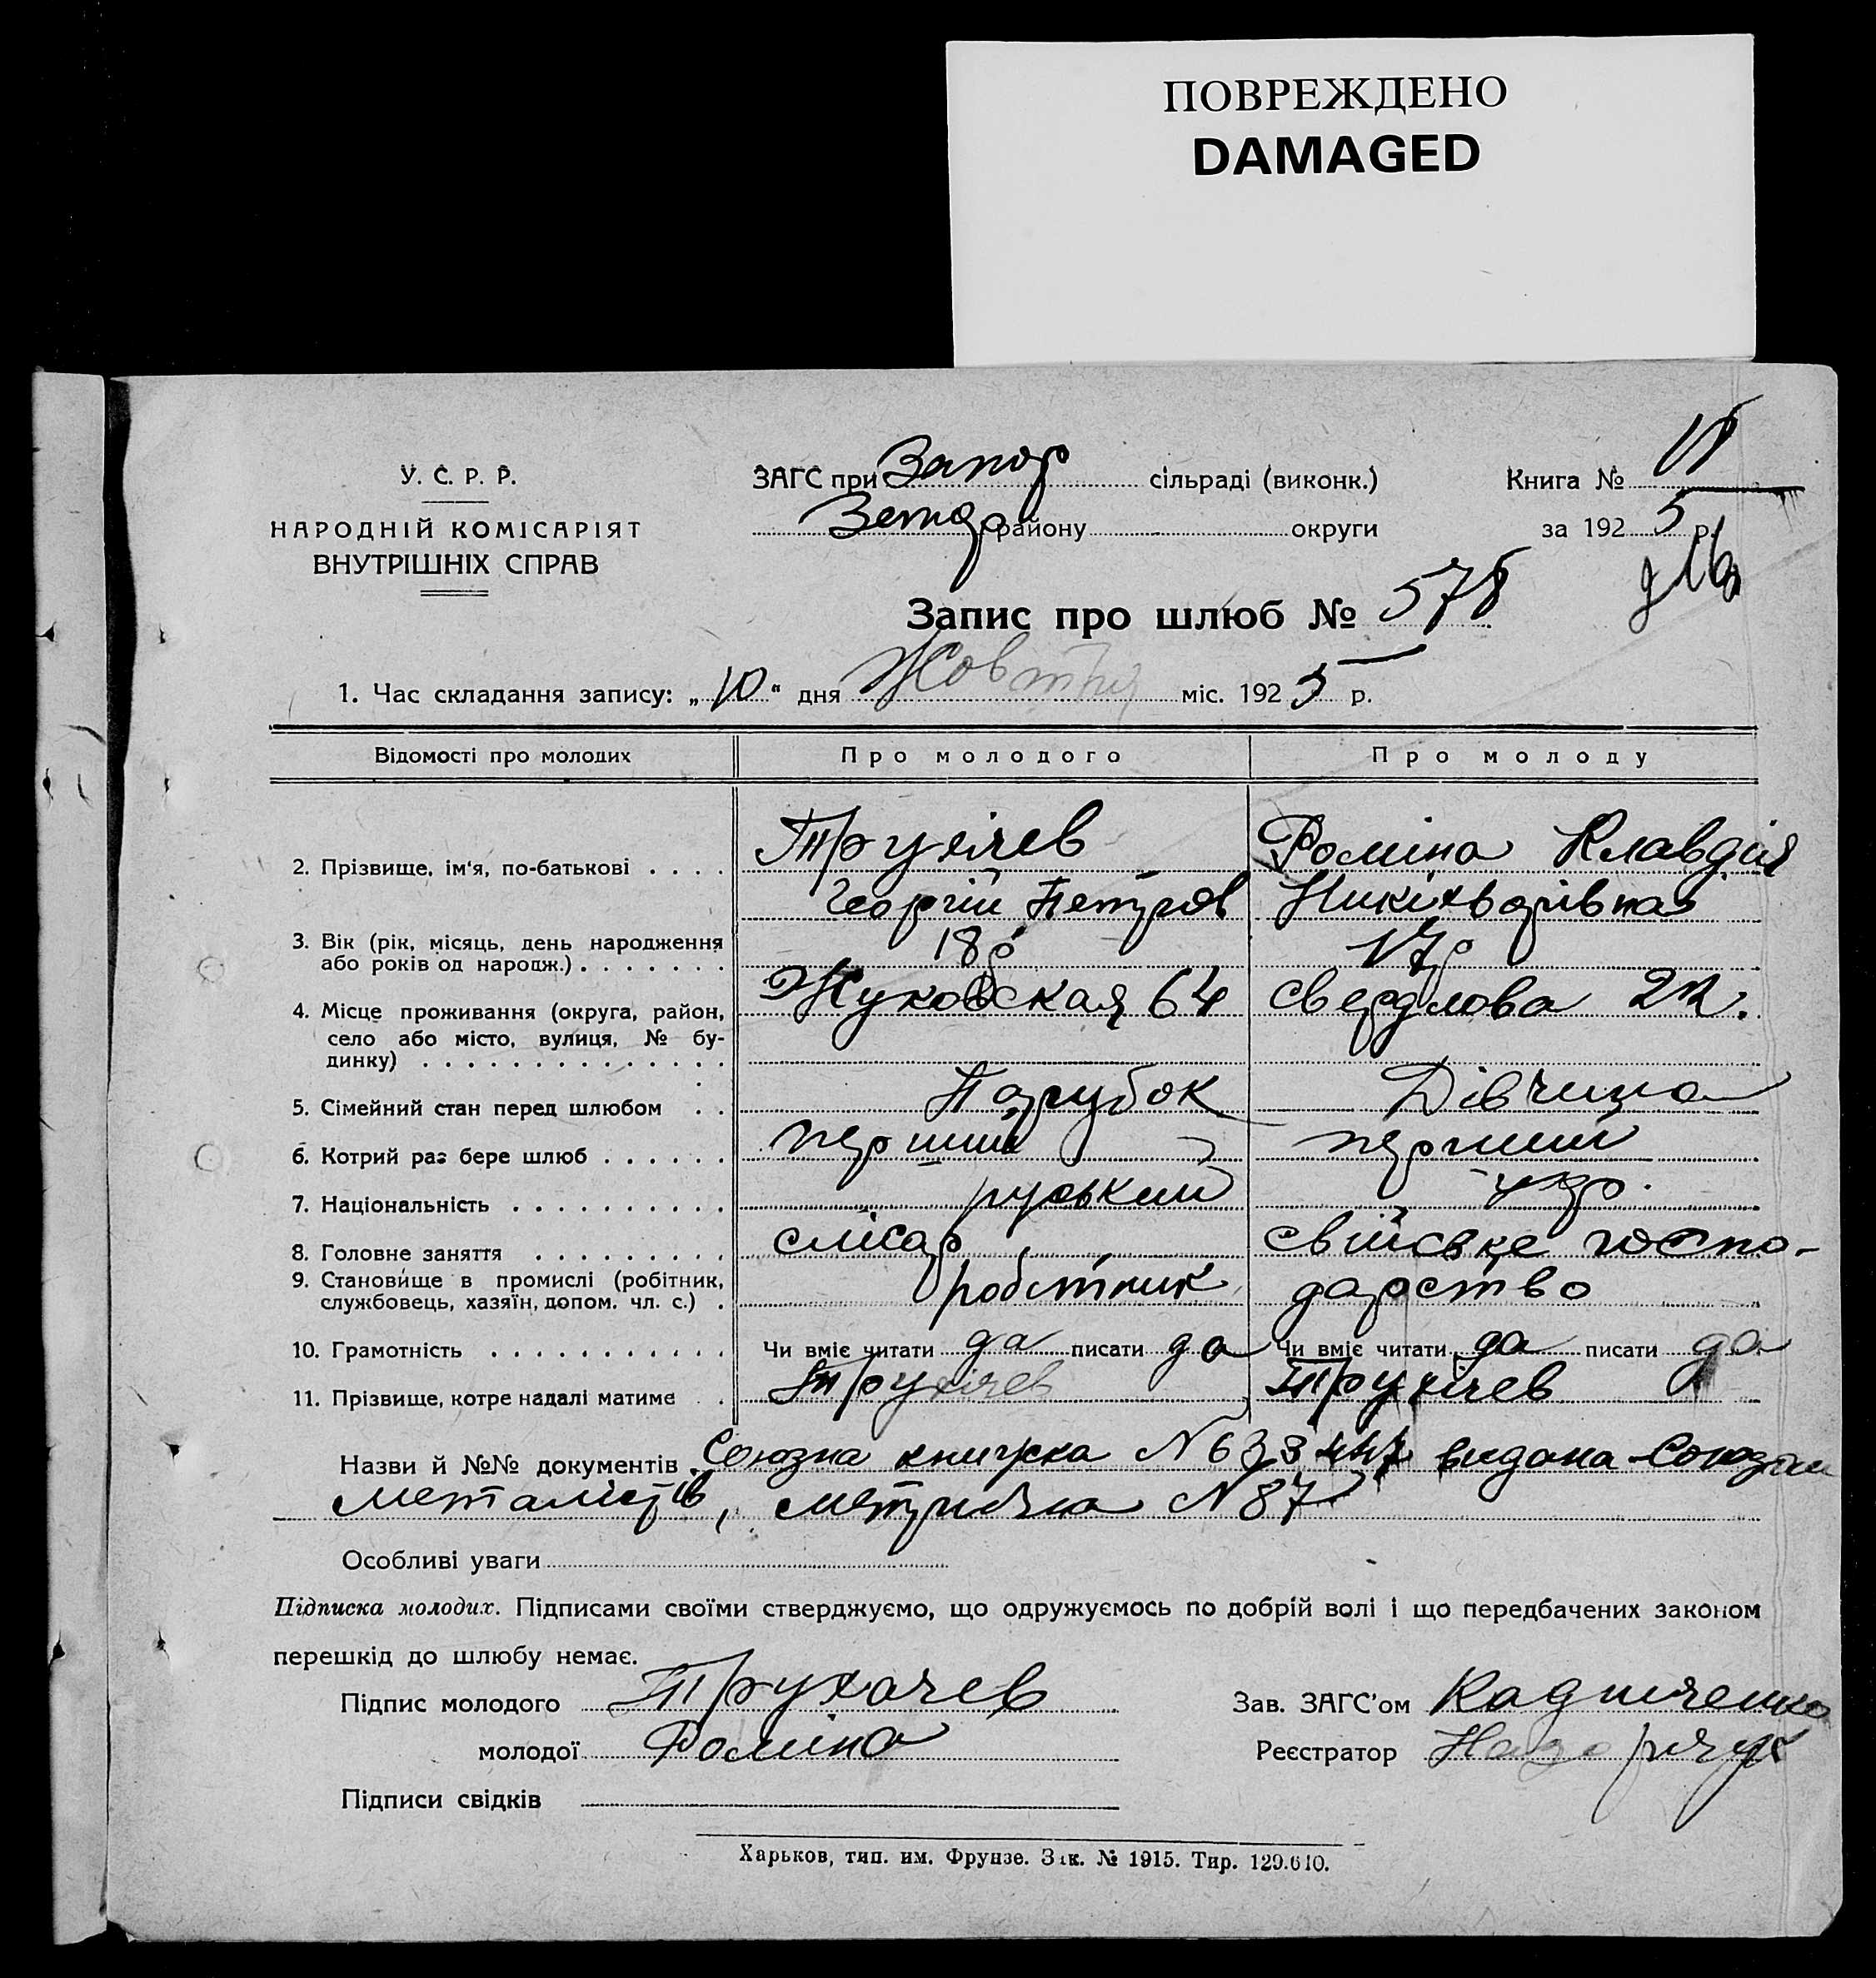 ПОВРЕЖДЕНО
DAMAGED
У. С. Р. Р.
НАРОДНІЙ КОМІСАРІЯТ
ВНУТРІШНІХ СПРАВ
ЗАГС при Запор сільраді (виконк.)
району округи
Книга №
за 192 5 р.
Запис про шлюб № 578
1. Час складання запису: „10“ дня Жовтня міс. 1925 р.
Відомості про молодих Про молодого Про молоду
2. Прізвище, ім‘я, по-батькові . . . . Трухічев Роміна Клавдія
Георгій Петров Никіхворівна
3. Вік (рік, місяць, день народження
або років од народж.) . . . . . . . 18 р 17 р
4. Місце проживання (округа, район,
село або місто, вулиця, № бу-
динку) . . . . . . . . . . . . . .
Жуковская 64 Свердлова 22.
5. Сімейний стан перед шлюбом . . Парубок Дівчина
6. Котрий раз бере шлюб . . . . . . перший перший
7. Національність . . . . . . . . . . руський укр.
8. Головне заняття . . . . . . . . . слісар свійське госпо-
9. Становище в промислі (робітник,
службовець, хазяїн, допом. чл. с.) . робітник дарство
10. Грамотність . . . . . . . . . . . Чи вміє читати да писати да Чи вміє читати да писати да
11. Прізвище, котре надалі матиме . . Трухічев Трухічев
Назви й №№ документів Союзна книжка N 633447 видана Союзом
металістів, метрична N 87
Особливі уваги
Підписка молодих. Підписами своїми стверджуємо, що одружуємось по добрій волі і що передбачених законом
перешкід до шлюбу немає.
Підпис молодого Трухачев Зав. ЗАГС’ом
молодої Роміна Реєстратор
Підписи свідків
Харьков, тип. им. Фрунзе. Зак. № 1915. Тир. 129.610.